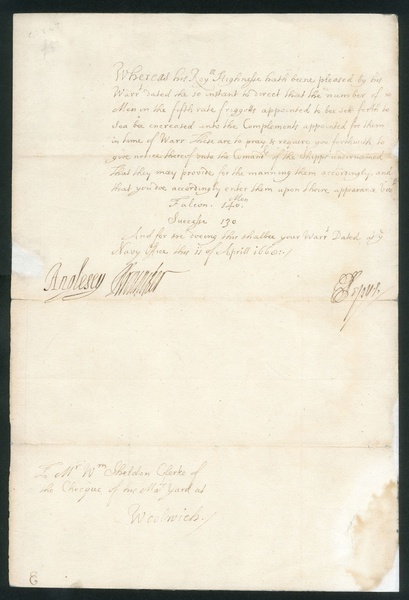 Whereas his Roy.ll Highnesse hath beene pleased by his
Warr.t dated the 10 instant to direct that the number of
Men in the fifth rate friggotts appointed to be sett forth to
Sea be encreased unto the Complements appointed for them
in time of Warr These are to pray & require you forthwith to
give notice thereof unto the Comand.rs of the Shipps undernamed
that they may provide for the manning them accordingly and
that you doe accordingly enter them upon their appearance viz.t
Falcon. 140 Men
Successe 130
And for soe doeing this shalbe your Warr.t Dated at y.e
Navy Office this 11 of Aprill
Anglesey
SPepys
To M.r W.m Sheldon Clerke of
the Checque of his Ma.ts Yard at
Woolwich